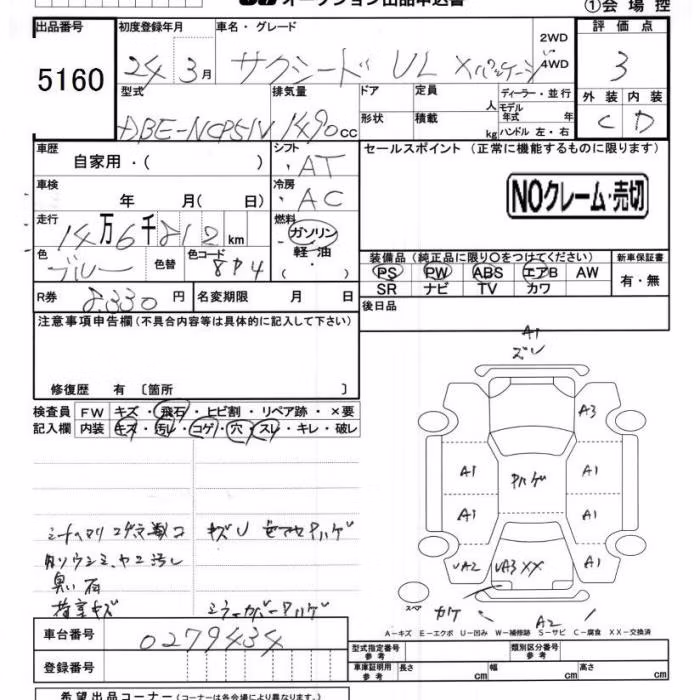 オークション出品申込書
①会場控
出品番号 初度登録年月 車名・グレード 評価点
5160
24 3月 サクシード UL Xパッケージ 2WD 4WD 3
型式 排気量 ドア 定員 人 ディーラー・並行 外装 内装
DBE-NCP51V 1490cc 形状 積載 kg モデル年式 年 ハンドル 左・右 C D
車歴 自家用・( ) シフト ・AT セールスポイント (正常に機能するものに限ります)
車検 年 月( 日) 冷房 ・AC
NOクレーム・売切
走行 14万6千812km 燃料 ガソリン 軽油 ( ・ )
装備品 (純正品に限り○をつけてください) 新車保証書
色 ブルー 色替 色コード 8P4
PS PW ABS エアB AW 有・無
SR ナビ TV カワ
R券 8.330円 名変期限 月 日
後日品
注意事項申告欄(不具合内容等は具体的に記入して下さい)
修復歴 有 〔箇所 〕
検査員 FW キズ・飛石・ヒビ割・リペア跡・×要
記入欄 内装 キズ・汚レ・コゲ・穴・スレ・キレ・破レ
A1
ズレ
A3
A1 ハゲ A1
A1 A1
UA2 UA3 XX A1
スペア カケ A2
シートヘタリ コゲ穴
キズU
汚し
臭い 有
キズ
ミラーカバーハゲ
A-キズ E-エクボ U-凹み W-補修跡 S-サビ C-腐食 XX-交換済
車台番号 0279434
登録番号
型式指定番号 参考 類別区分番号 参考
車庫証明用 参考 長さ cm 幅 cm 高さ cm
希望出品コーナー (コーナーは各会場により異なります)